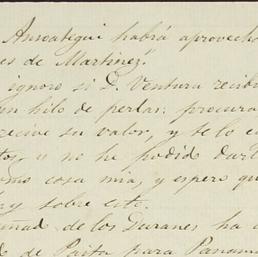 Anzoategui habrá aprovecho
es de Martinez."
ignoro si D. Ventura recibi
un hilo de perlas: procura
recive su valor, y te lo e
to, y no he podido dart
omo cosa mia, y espero qu
ay sobre este.
uñad de los Duranes ha
de Paita para Panama